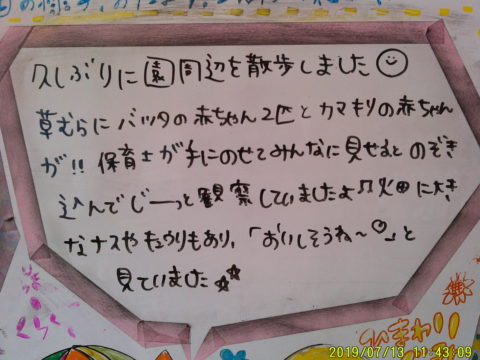 久しぶりに園周辺を散歩しました☺
草むらにバッタの赤ちゃん2匹とカマキリの赤ちゃん
が!!保育士が手にのせてみんなに見せるとのぞき
込んでじーっと観察していましたよ♫火田に大き
なナスやキュウリもあり、「おいしそうね〜♡」と
見ていました☆☆
さくら
ひまわり
2019/07/13 11:43:09